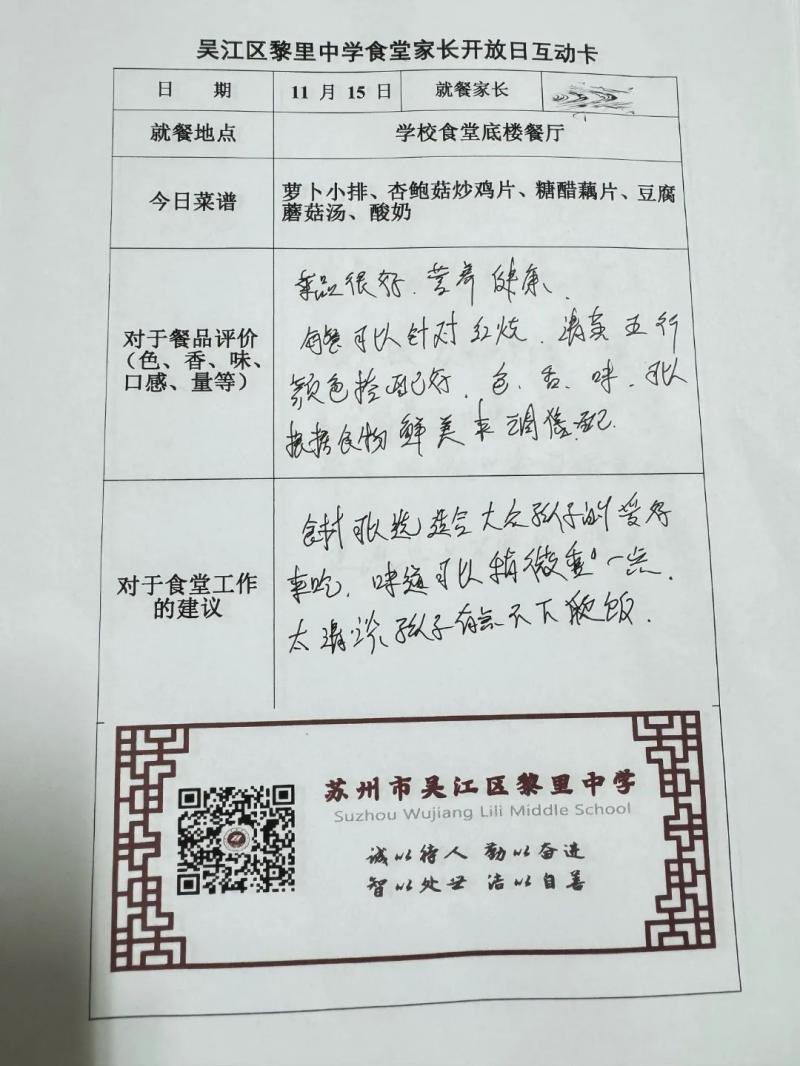 吴江区黎里中学食堂家长开放日互动卡
日 期 11 月 15 日 就餐家长
就餐地点 学校食堂底楼餐厅
今日菜谱
萝卜小排、杏鲍菇炒鸡片、糖醋藕片、豆腐
蘑菇汤、酸奶
对于餐品评价
（色、香、味、
口感、量等）
菜品很好、营养健康、
每餐可以针对红烧、清蒸五行
颜色搭配好、色、香、味、可以
根据食物鲜美来调
对于食堂工作
的建议
食材可以选适合大众孩子的爱好
来吃、味道可以稍微重一点、
太清淡、孩子有点不下饭.
苏州市吴江区黎里中学
Suzhou Wujiang Lili Middle School
诚以待人 勤以奋进
智以处世 洁以自善